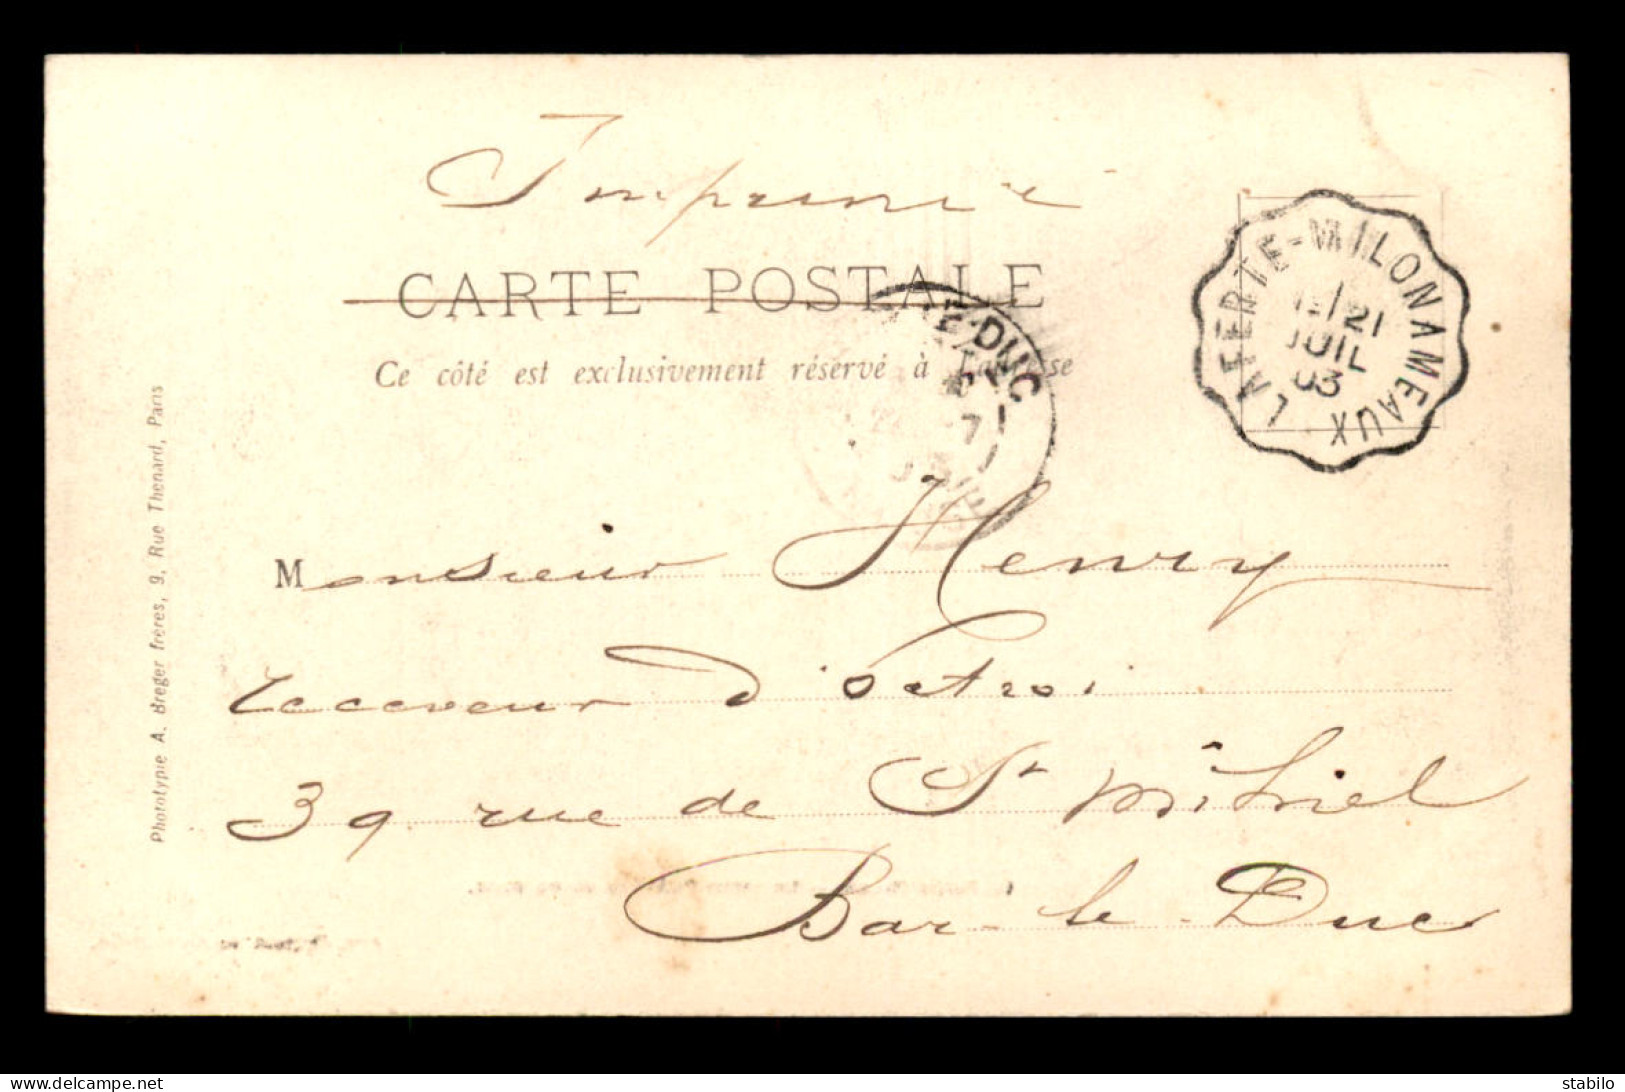 Imprimé
CARTE POSTALE
Ce côté est exclusivement réservé à l'adresse
LA FERTE-MILON A MEAUX
21
JUIL
03
LE-DUC
7
Monsieur Henry
receveur d'octroi
39 rue de St Mihiel
Bar-le-Duc
Phototypie A. Breger frères, 9, Rue Thenard, Paris
stabilo